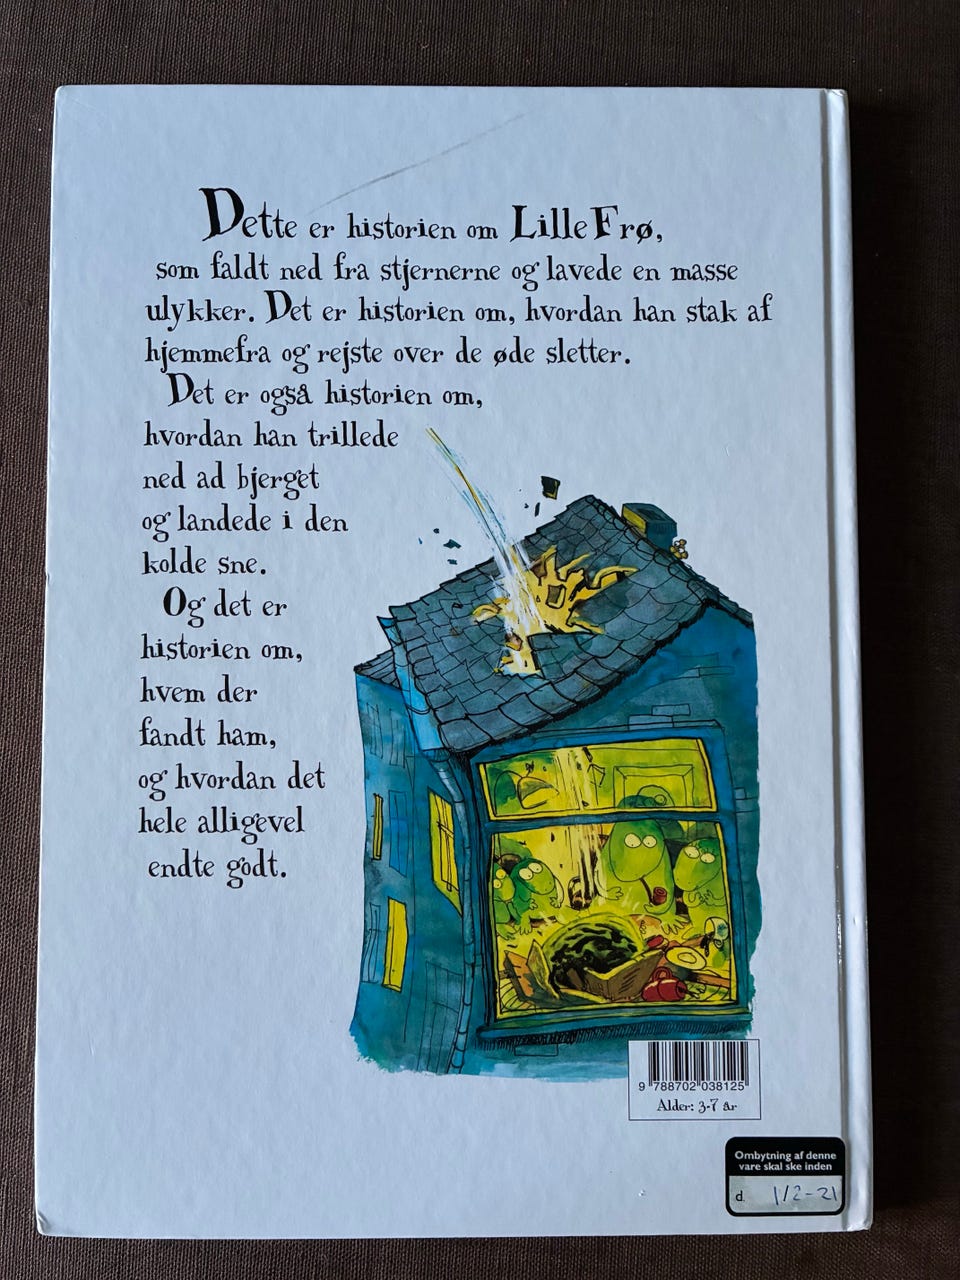 Dette er historien om Lille Frø,
som faldt ned fra stjernerne og lavede en masse
ulykker. Det er historien om, hvordan han stak af
hjemmefra og rejste over de øde sletter.
Det er også historien om,
hvordan han trillede
ned ad bjerget
og landede i den
kolde sne.
Og det er
historien om,
hvem der
fandt ham,
og hvordan det
hele alligevel
endte godt.
9 788702 038125
Alder: 3-7 år
Ombytning af denne
vare skal ske inden
d. 1/2-21